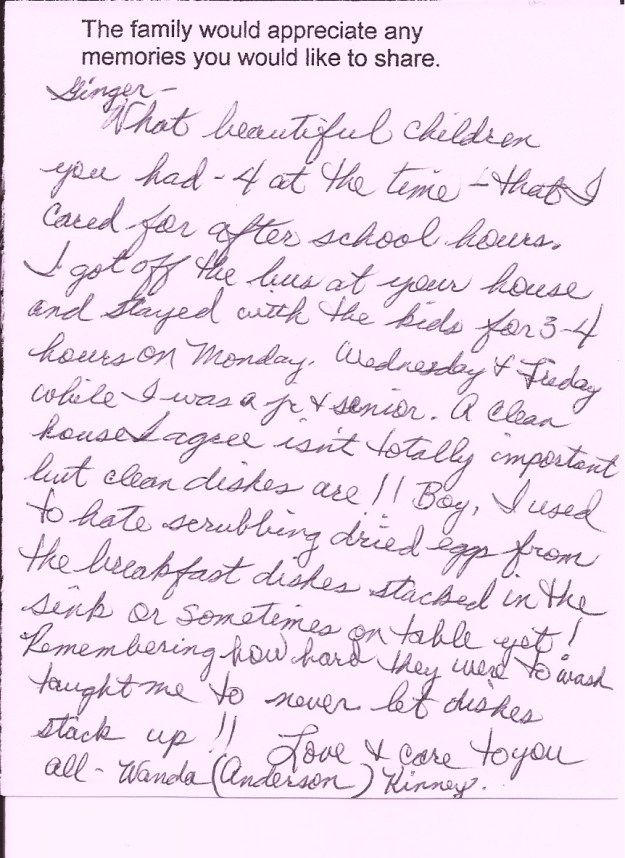 The family would appreciate any
memories you would like to share.
Ginger -
What beautiful children
you had - 4 at the time - that I
cared for after school hours.
I got off the bus at your house
and stayed with the kids for 3-4
hours on Monday. Wednesday & Friday
while I was a jr & senior. A clean
house I agree isn't totally important
but clean dishes are!! Boy, I used
to hate scrubbing dried eggs from
the breakfast dishes stacked in the
sink or sometimes on table yet!
Remembering how hard they were to wash
taught me to never let dishes
stack up!! Love & care to you
all - Wanda (Anderson) Kinney.